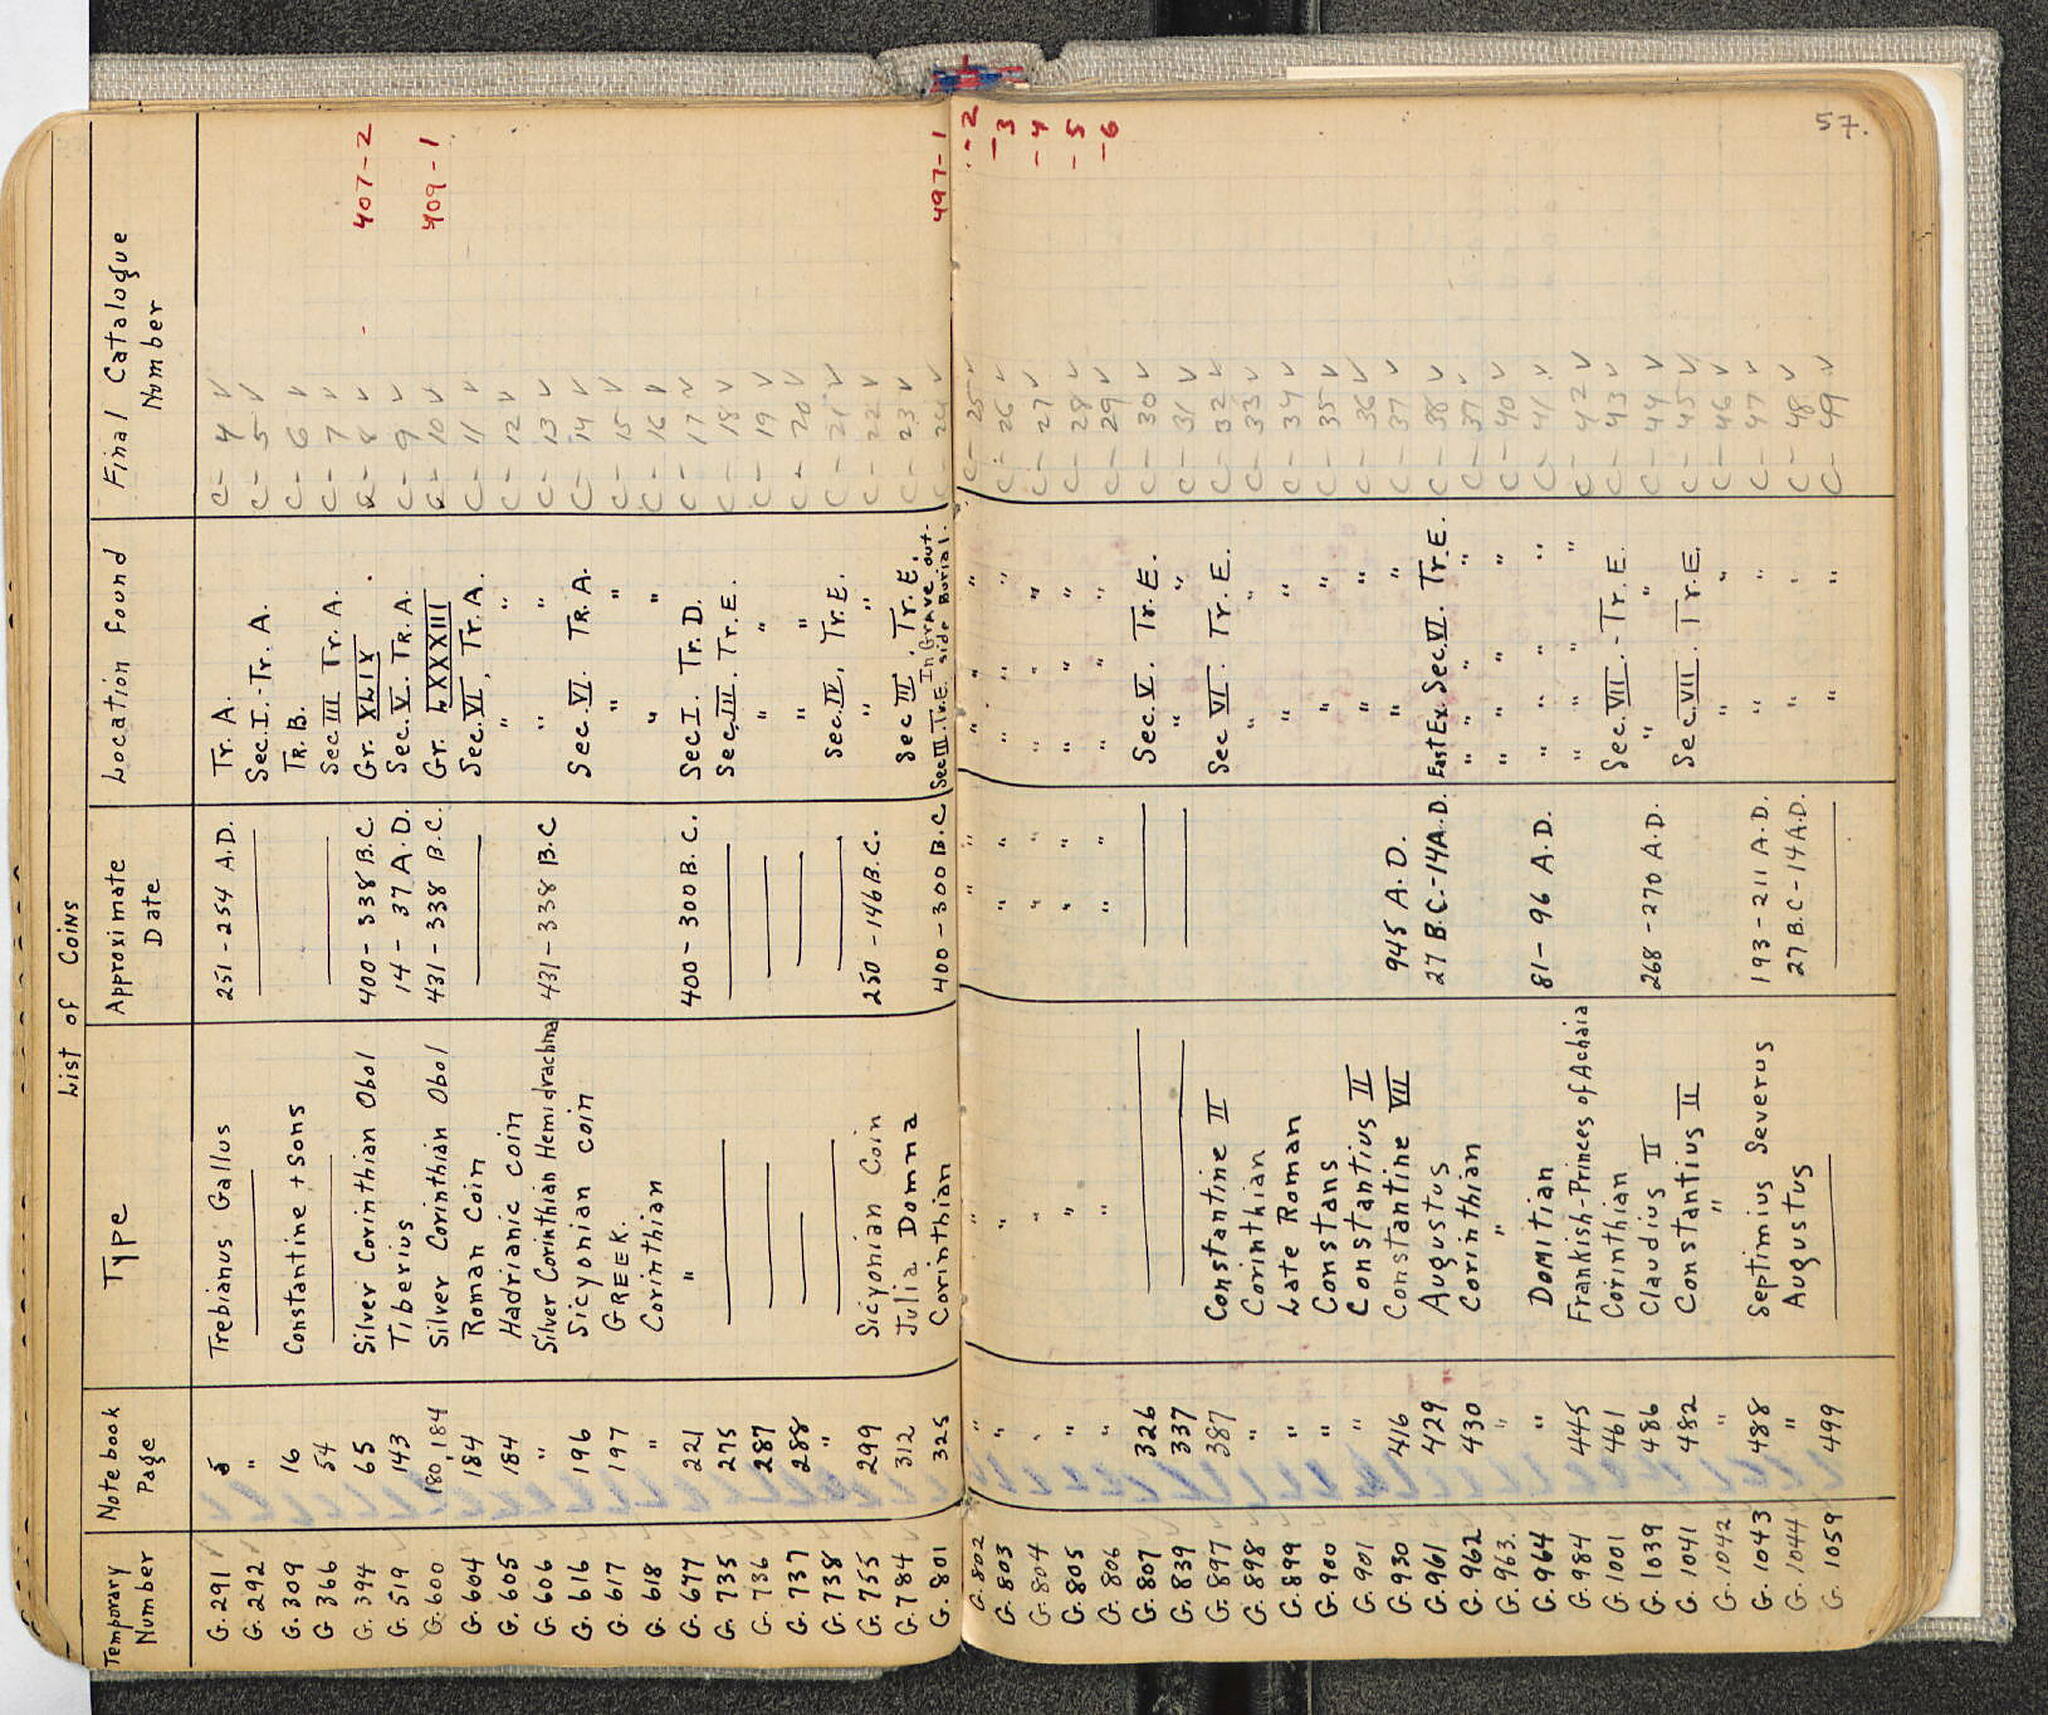 57.
List of Coins
Temporary Number Notebook Page Type Approximate Date Location Found Final Catalogue Number
G. 291 5 Trebianus Gallus 251-254 A.D. Tr. A. C-4 ✓
G. 292 " —— —— Sec. I.-Tr. A. C-5 ✓
G. 309 16 Constantine + Sons TR. B. C-6 ✓
G 366 54 —— —— Sec III Tr. A. C-7 ✓
G. 394 65 Silver Corinthian Obol 400-338 B.C. Gr. XLIX C-8 ✓ 407-2
G. 519 143 Tiberius 14-37 A.D. Sec. V. TR. A. C-9 ✓
G. 600 180, 184 Silver Corinthian Obol 431-338 B.C. Gr. LXXXIII C-10 ✓ 409-1
G. 604 184 Roman Coin —— Sec. VI, Tr. A. C-11 ✓
G. 605 184 Hadrianic coin " " C-12 ✓
G. 606 " Silver Corinthian Hemidrachma 431-338 B.C " " C-13 ✓
G. 616 196 Sicyonian coin Sec. VI. TR. A. C-14 ✓
G. 617 197 GREEK. " " C-15 ✓
G. 618 " Corinthian " " C-16 ✓
G. 677 221 " 400-300 B.C. Sec I. Tr. D. C-17 ✓
G. 735 275 —— —— Sec. III. Tr. E. C-18 ✓
G. 736 287 —— —— " " C-19 ✓
G. 737 288 —— —— " " C-20 ✓
G. 738 " —— —— Sec. IV, Tr. E. C-21 ✓
G. 755 299 Sicyonian Coin 250-146 B.C. " " C-22 ✓
G. 784 312 Julia Domna Sec III. Tr. E. C-23 ✓
G. 801 325 Corinthian 400-300 B.C Sec III. Tr. E. In Grave out-side Burial. C-24 ✓ 497-1
G. 802 " " " " " " " C-25 ✓ -2
G. 803 " " " " " " " C-26 ✓ -3
G. 804 " " " " " " " C-27 ✓ -4
G. 805 " " " " " " " C-28 ✓ -5
G. 806 " " " " " " " C-29 ✓ -6
G. 807 326 —— —— Sec. V. Tr. E. C-30 ✓
G. 839 337 —— —— " " C-31 ✓
G. 897 387 Constantine II Sec VI. Tr. E. C-32 ✓
G. 898 " Corinthian " " C-33 ✓
G. 899 " Late Roman " " C-34 ✓
G. 900 " Constans " " C-35 ✓
G. 901 " Constantius II " " C-36 ✓
G. 930 416 Constantine VII 945 A.D. " " C-37 ✓
G. 961 429 Augustus 27 B.C.-14 A.D. East Ex. Sec. VI. Tr. E. C-38 ✓
G. 962 430 Corinthian " " " " C-39 ✓
G. 963. " " " " " C-40 ✓
G. 964 " DOMITIAN 81-96 A.D. " " " C-41 ✓
G. 984 445 Frankish-Princes of Achaia " " " C-42 ✓
G. 1001 461 Corinthian Sec. VII.-Tr. E. C-43 ✓
G. 1039 486 Claudius II 268-270 A.D. " " C-44 ✓
G. 1041 482 Constantius II Sec. VII. Tr. E. C-45 ✓
G. 1042 " " " " C-46 ✓
G. 1043 488 Septimius Severus 193-211 A.D. " " C-47 ✓
G. 1044 " Augustus 27 B.C-14 A.D. " " C-48 ✓
G. 1059 499 —— —— " " C-49 ✓